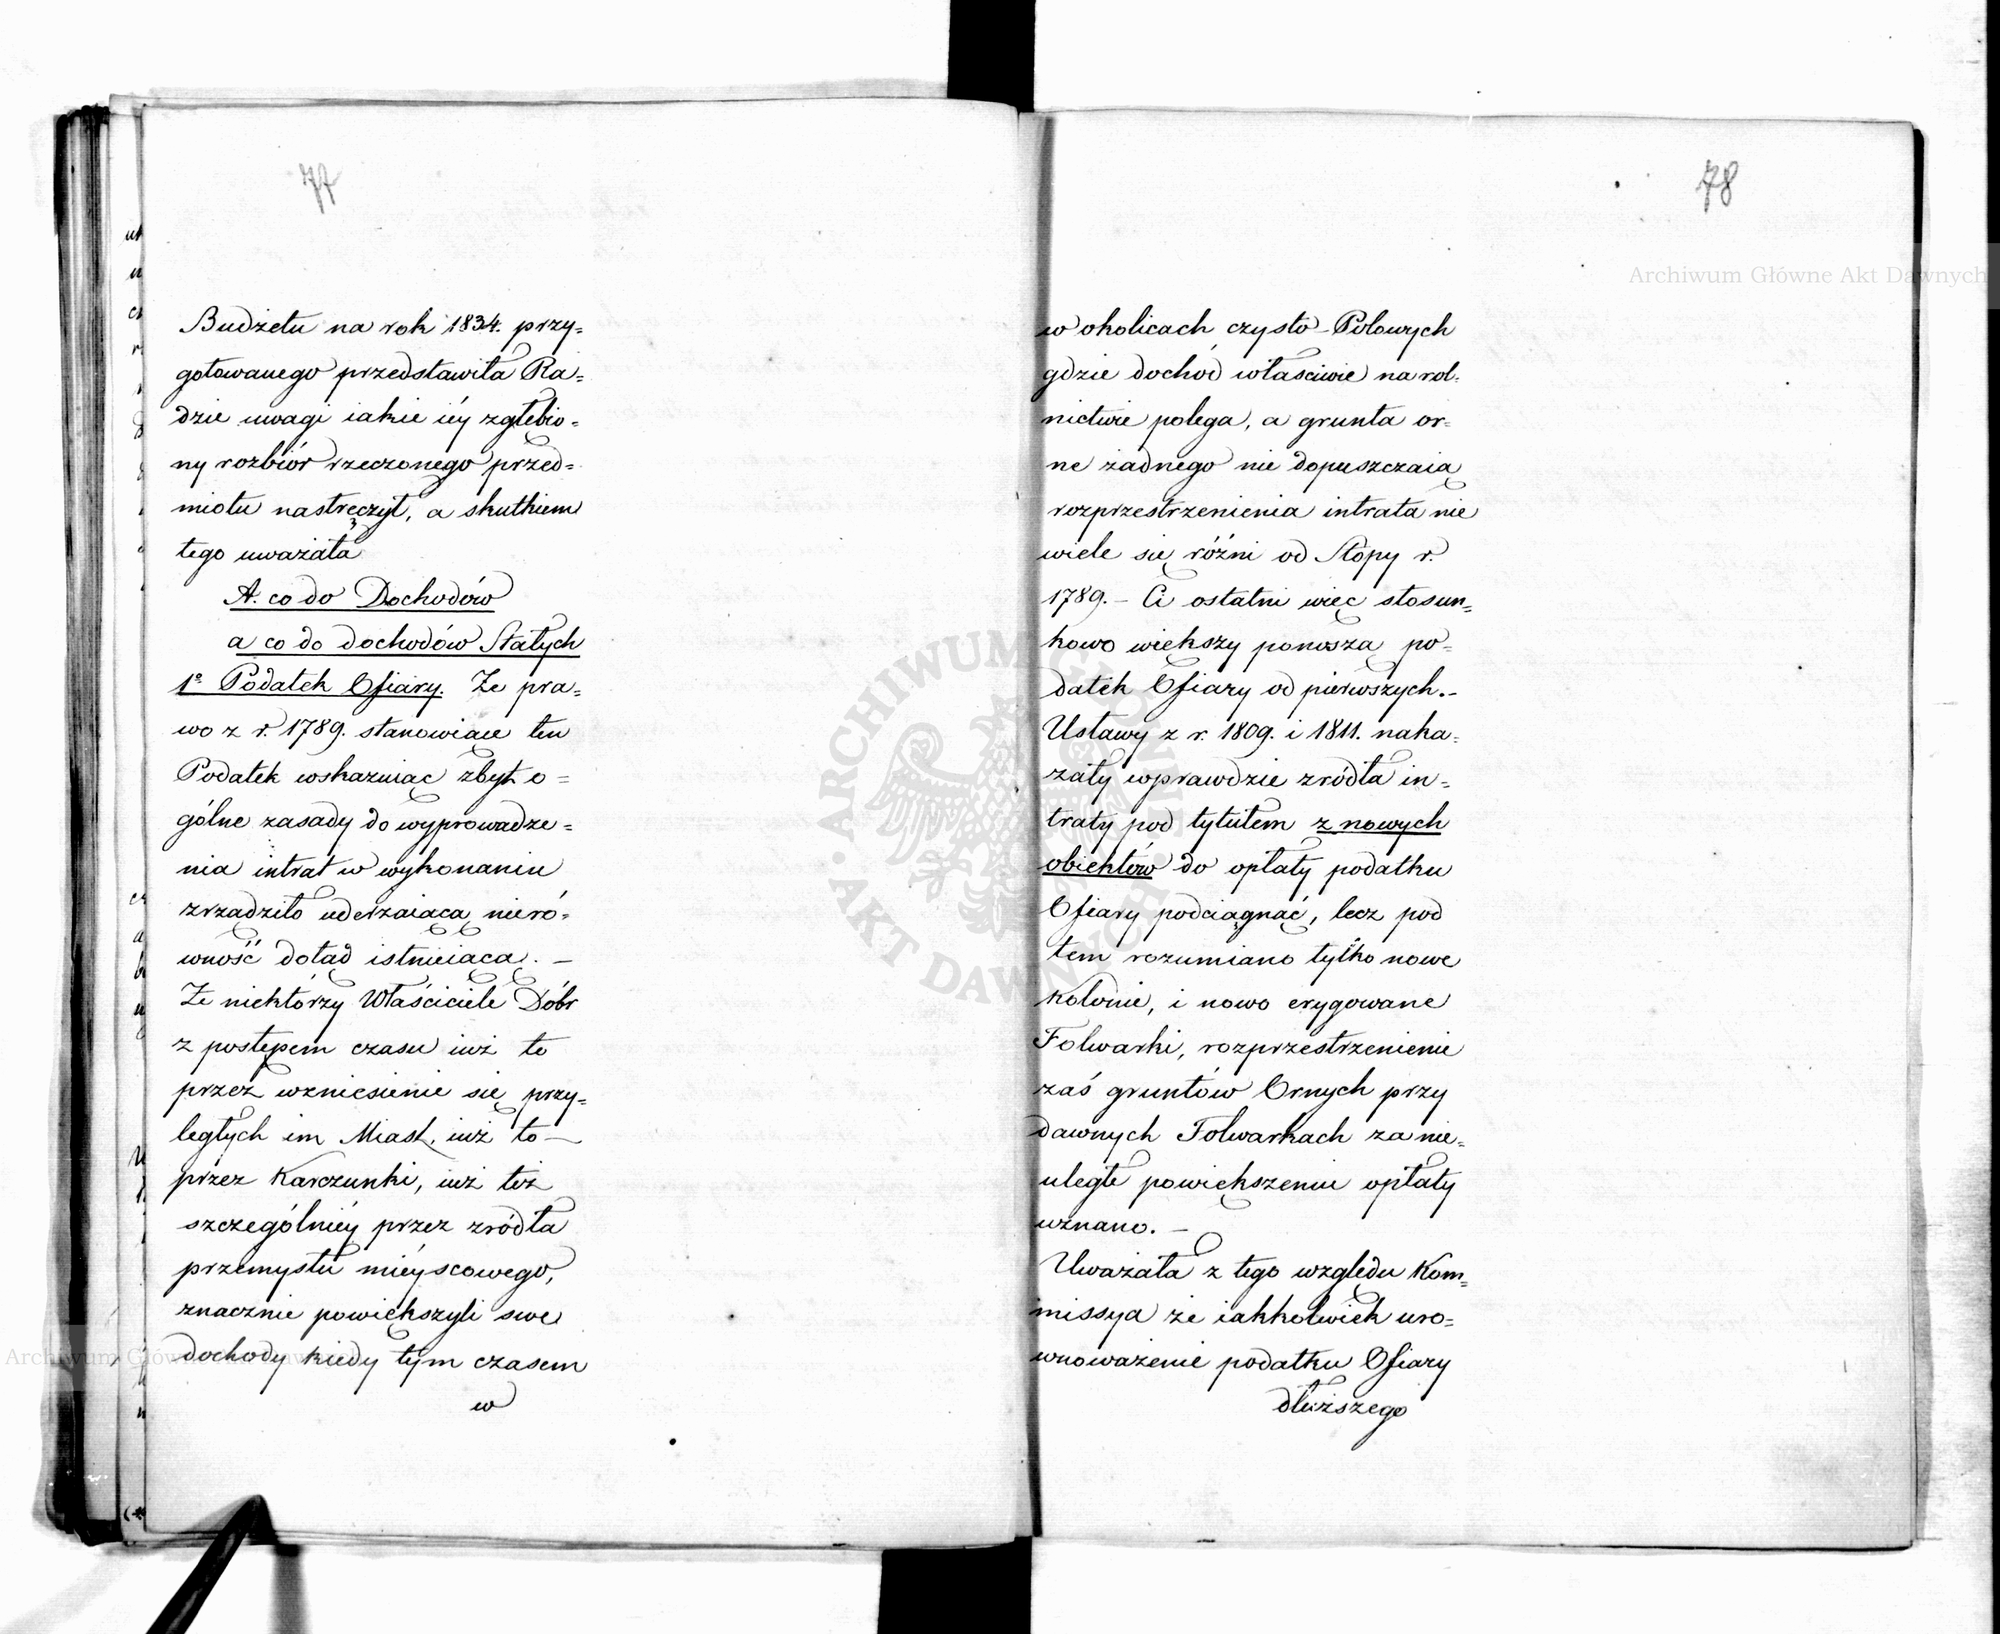 77
Budżetu na rok 1834. przy=
gotowanego przedstawiła Ra=
dzie uwagi iakie iéy zgłębio=
ny rozbiór rzeczonego przed=
miotu nastręczył, a skutkiem
tego uważała
A. co do Dochodów
a co do dochodów Stałych
1º Podatek Ofiary. Że pra=
wo z r. 1789. stanowiące ten
Podatek wskazuiąc zbyt o=
gólne zasady do wyprowadze=
nia intrat w wykonaniu
zrządziło uderzaiącą nieró=
wność dotąd istnieiącą. —
Że niektórzy Właściciele Dóbr
z postępem czasu iuż to
przez wzniesienie się przy=
ległych im Miast, iuż to —
przez Karczunki, iuż też
szczególniéy przez zródła
przemysłu miéyscowego,
znacznie powiększyli swe
dochody kiedy tym czasem
w
78
w okolicach czysto-Polowych
gdzie dochód właściwie na rol=
nictwie polega, a grunta or=
ne żadnego nie dopuszczaią
rozprzestrzenienia intrata nie
wiele się różni od Stopy r.
1789. – Ci ostatni więc stosun=
kowo większy ponoszą po=
datek Ofiary od pierwszych. –
Ustawy z r. 1809. i 1811. naka=
zały wprawdzie zródła in=
traty pod tytułem z nowych
obiektów do opłaty podatku
Ofiary podciągnąć, lecz pod
tem rozumiano tylko nowe
kolonie, i nowo erygowane
Folwarki, rozprzestrzenienie
zaś gruntów Ornych przy
dawnych Folwarkach za nie=
uległe powiększeniu opłaty
uznano. —
Uważała z tego względu Kom=
missya że iakkolwiek uro=
wnoważenie podatku Ofiary
dłuższego
Archiwum Główne Akt Dawnych
Archiwum Główne Akt Dawnych
ARCHIWUM GŁÓWNE · AKT DAWNYCH ·